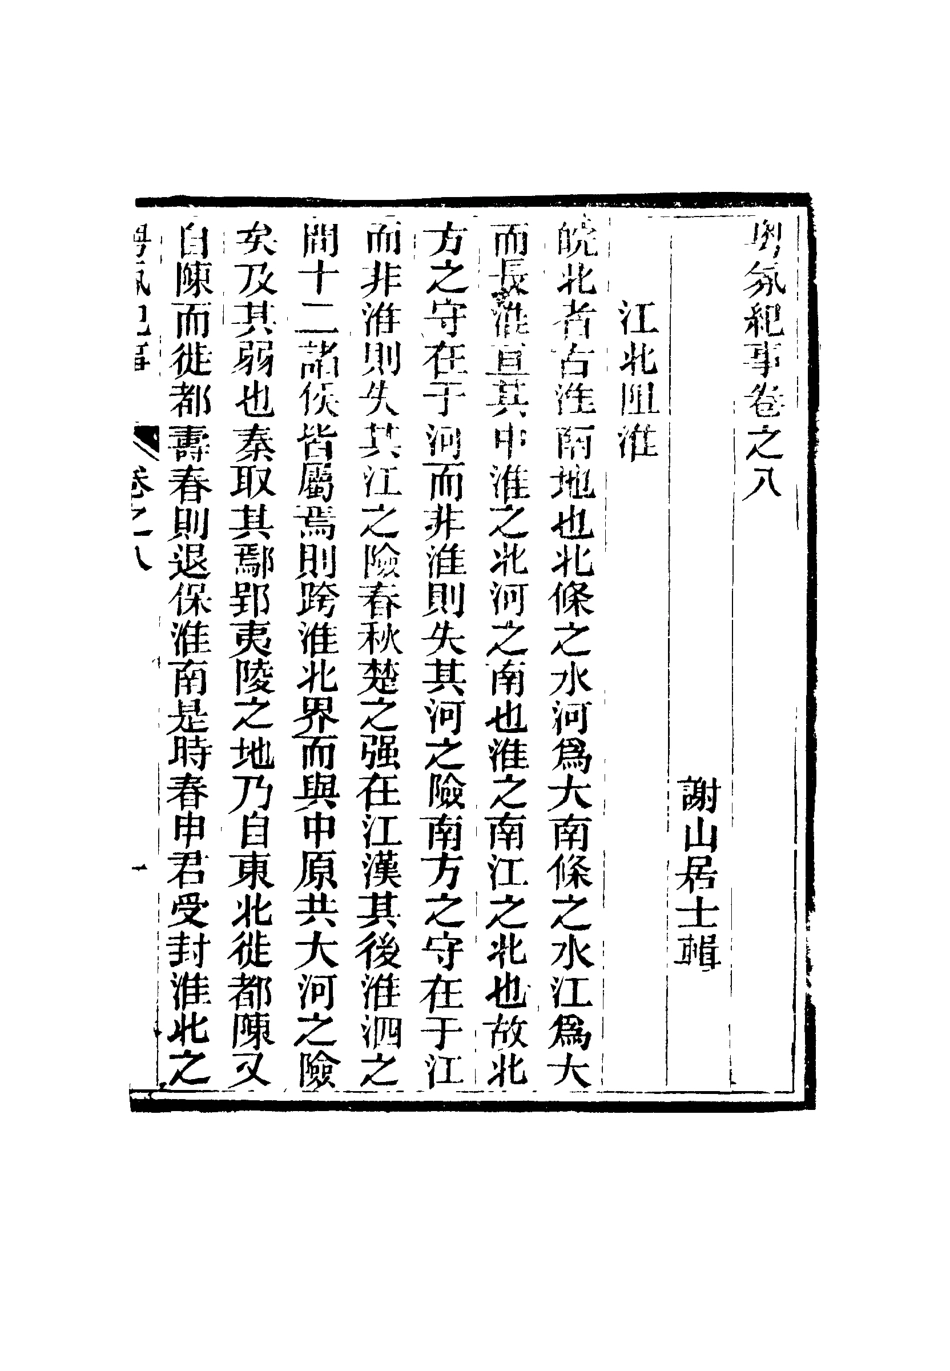 粵氛紀事卷之八
謝山居士輯
江北阻淮
皖北者古淮南地也北條之水河爲大南條之水江爲大
而長淮亘其中淮之北河之南也淮之南江之北也故北
方之守在于河而非淮則失其河之險南方之守在于江
而非淮則失其江之險春秋楚之强在江漢其後淮泗之
間十二諸侯皆屬焉則跨淮北界而與中原共大河之險
矣及其弱也秦取其鄢郢夷陵之地乃自東北徙都陳又
自陳而徙都壽春則退保淮南是時春申君受封淮北之
粵氛紀事 卷之八 一